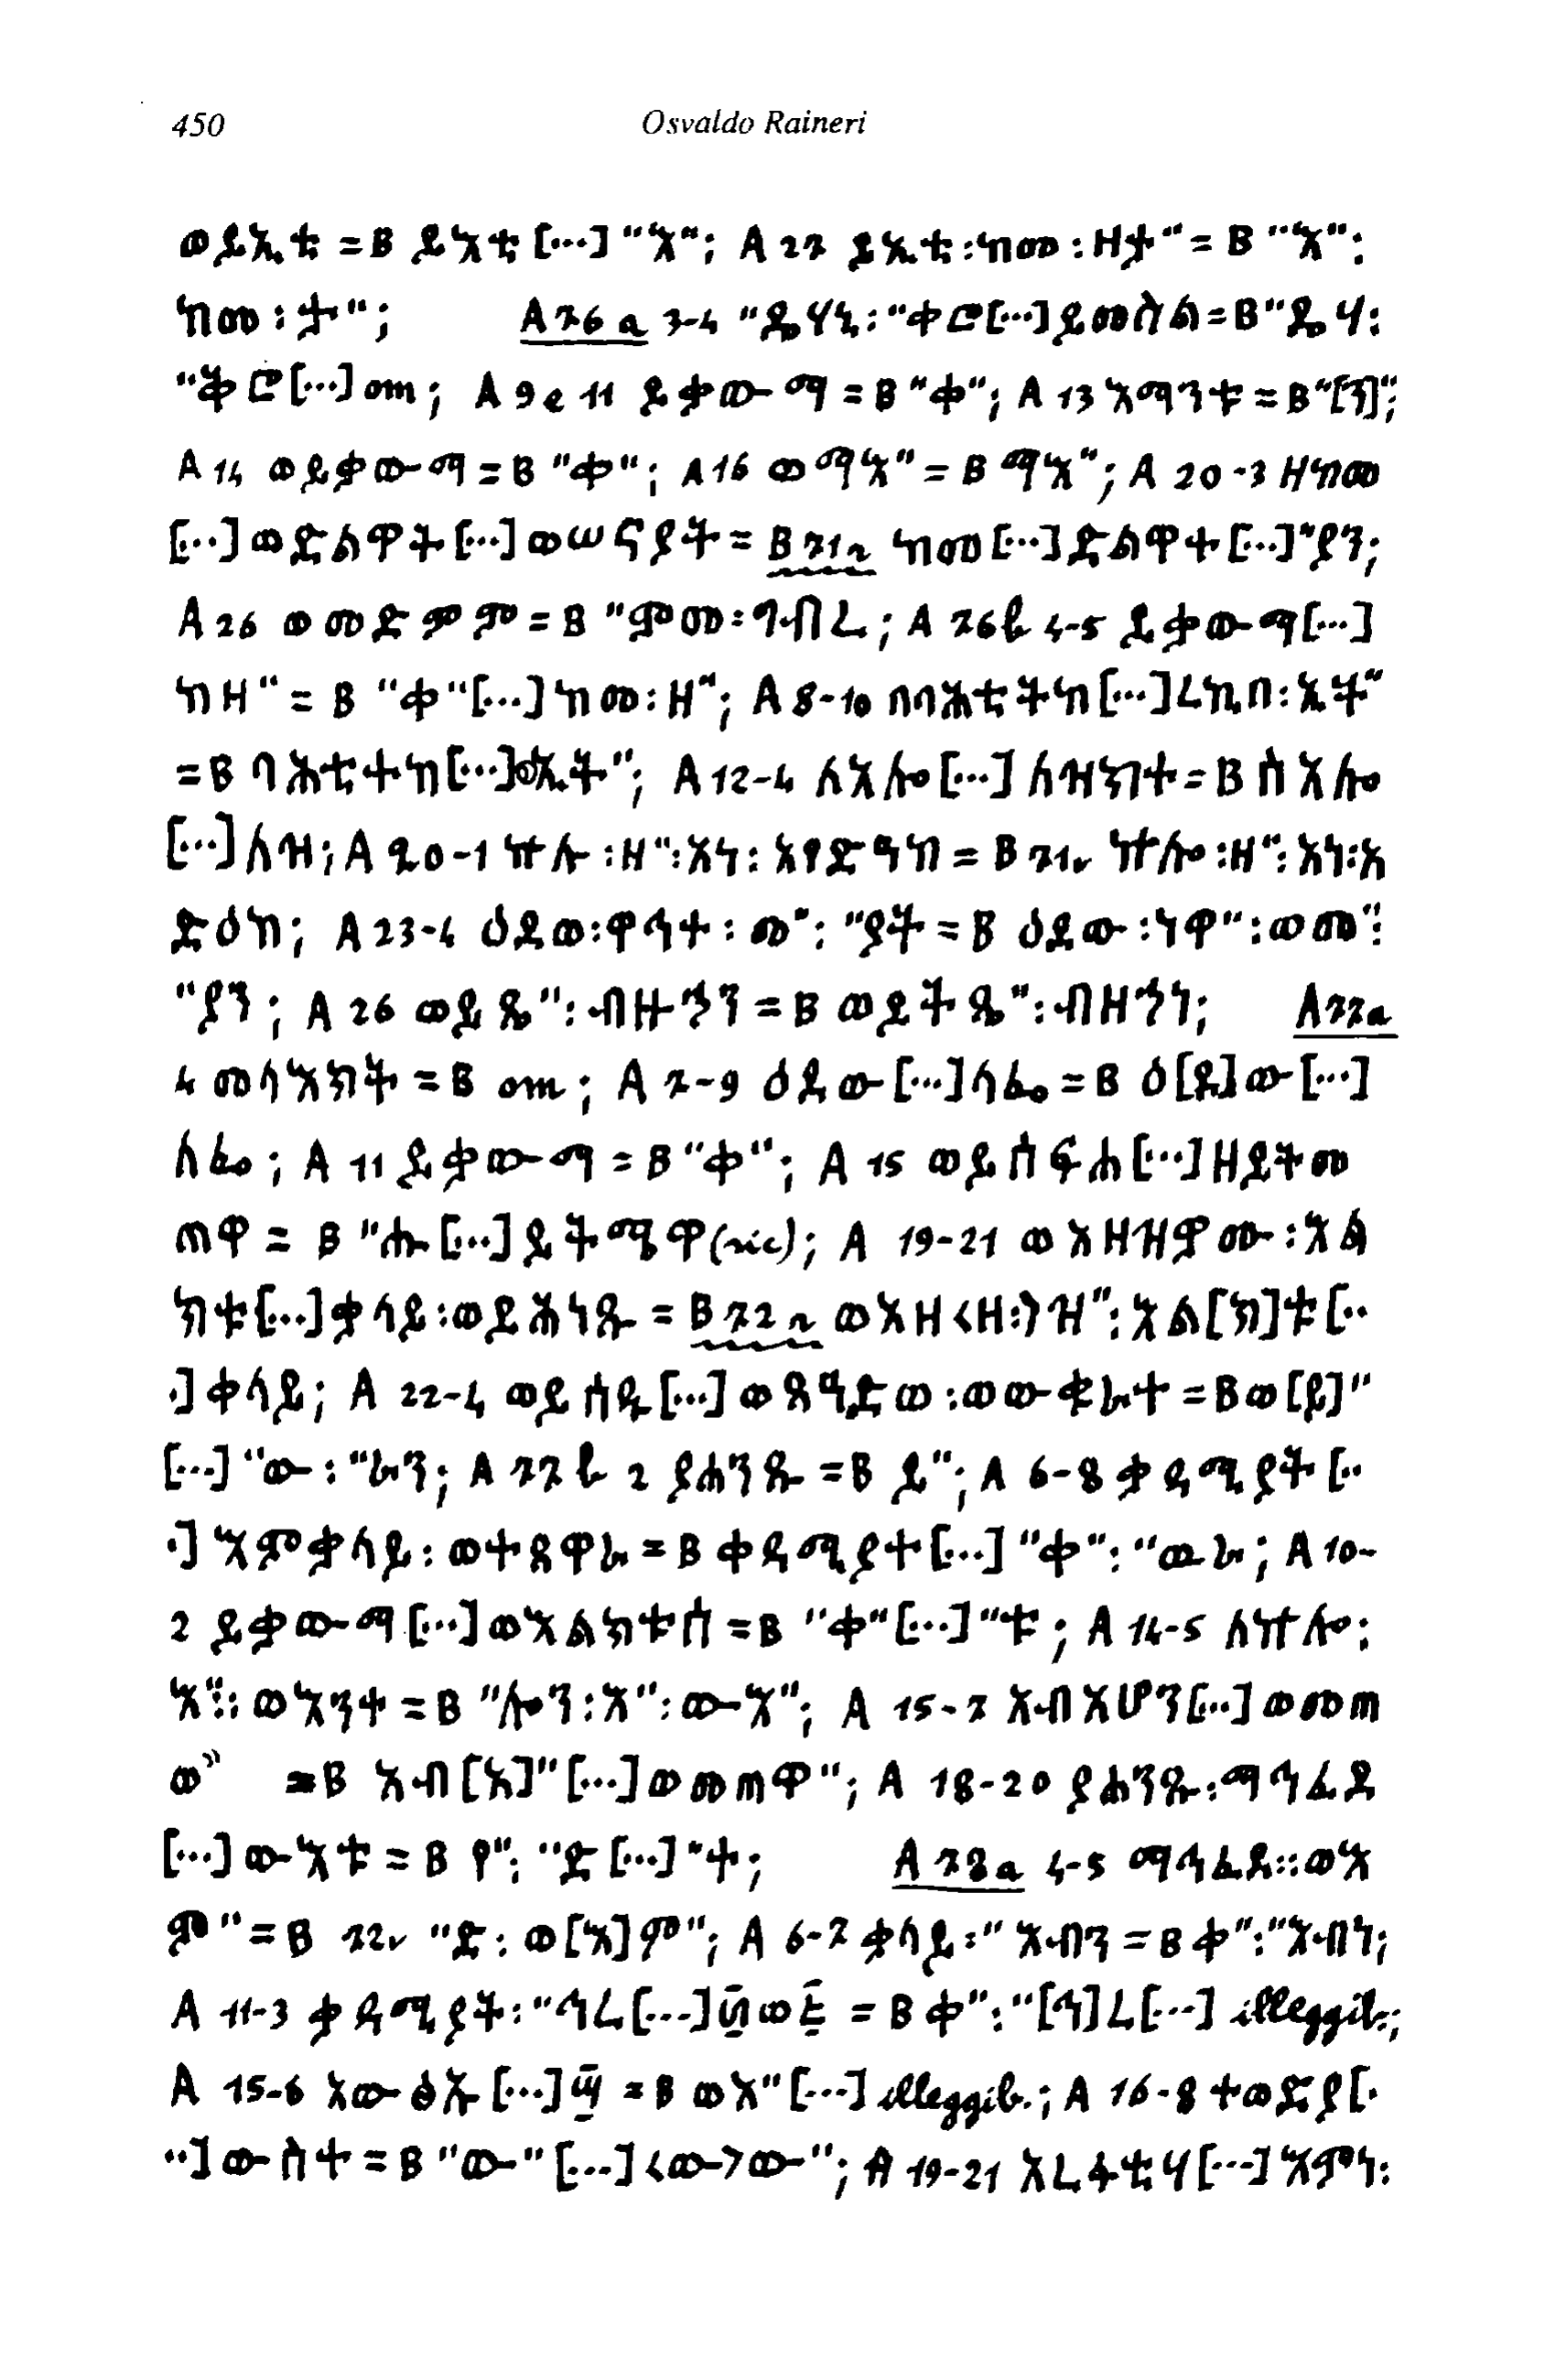 450 Osvaldo Raineri
ወይእቲ = B ይእቲ [...] "እ"; A 27 ይእቲ : ከመ : ዘታ" = B "እ" :
ከመ : ታ"; A 76 a 3-4 "ዴሃኒ : "ቅሮ[...] ይመስል = B "ዴሃ :
"ቅሮ[...] om; A 9 e 11 ይቀውማ = B "ቀ"; A 13 እማንቱ = B "[ን]";
A 14 ወይቀውማ = B "ቀ"; A 16 ወማእ" = B ማእ"; A 20-3 ዘከመ
[...] ወድልዋት [...] ወሠናያት = B 71r ከመ [...] ድልዋት [...] "ያን;
A 26 ወመድምም = B "ምመ : ግብር; A 76b 4-5 ይቀውማ [...]
ከዘ" = B "ቀ" [...] ከመ : ዘ"; A 8-10 በባሕቲትከ [...] ርኬበ : እት"
= B ባሕቲትከ [...] እት"; A 12-4 ለእሎ [...] ለዝንቱ = B ሰእሎ
[...] ለዝ; A 20-1 ኵሉ : ዘ" : እነ : አየድዓከ = B 71v ኵሎ : ዘ" : እነ : አ
ድዕከ; A 23-4 ዕደወ : ዋኅት : መ" : "ያት = B ዕደው : ነዋ" : ወመ" :
"ያን; A 26 ወይዴ" : ብዙኃን = B ወይትዴ" : ብዙኃነ; A 77a
4 መሳእክት = B om; A 7-9 ዕደው [...] ሳፎ = B ዕ[ደ]ው [...]
ለፎ; A 11 ይቀውማ = B "ቀ"; A 15 ወይሰፍሕ [...] ዘይትመ
ጠዋ = B "ሑ [...] ይትሜዋ (sic); A 19-21 ወአዘዞሙ : እል
ክቱ [...] ቀሳይ : ወይሕነጹ = B 72r ወአዘ<ዘ:>ዝ" : እል[ክ]ቱ [..
.] ቀሳይ; A 22-4 ወይሰዱ [...] ወጸዓድወ : ወውቄራት = B ወ[ይ]"
[...] "ው : "ራን; A 77b 2 ያሐንጹ = B ይ"; A 6-8 ቀዳሚያት [..
.] እምቀሳይ : ወተጸዋራ = B ቀዳሚያት [...] "ቀ" : "ውራ; A 10-
2 ይቀውማ [...] ወእልክቱሰ = B "ቀ" [...] "ቱ; A 14-5 ለኵሎ :
እ" : ወእንተ = B "ሎን : እ" : ውእ"; A 15-7 አብአሆን [...] ወመጠ
ወ" = B አብ[አ]" [...] ወመጠዋ"; A 18-20 ያሐንጹ : ማኅፈደ
[...] ውእቱ = B የ" : "ድ [...] "ት; A 78a 4-5 ማኅፈደ :: ወእ
ም" = B 72v "ድ : ወ[እ]ም"; A 6-7 ቀሳይ : "አብን = B ቀ" : "አብነ;
A 11-3 ቀዳሚያት : "ኅር [...] ፶ወ፩ = B ቀ" : "[ኅ]ር [...] illeggib.;
A 15-6 አውዕኡ [...] ፸ = B ወአ" [...] illeggib.; A 16-8 ተወድያ [.
..] ውስተ = B "ው" [...] <ው>ው"; A 19-21 አርፋቲሃ [...] እምነ :